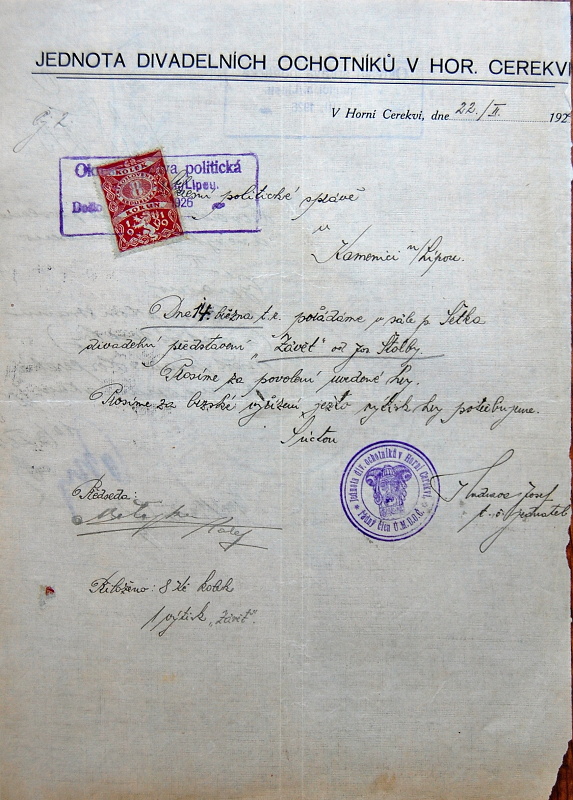 JEDNOTA DIVADELNÍCH OCHOTNÍKŮ V HOR. CEREKVI
V Horní Cerekvi, dne 22./II. 192
Okr va politická
Lipou.
Došlo 1926
KOLEK
KORUN
politické správě
v
Kamenici n/Lipou.
Dne 14. března t.r. pořádáme v sále p. Šetka
divadelní představení „Závěť" od Jos. Štolby.
Prosíme za povolení uvedené hry.
Prosíme za brzské vyřízení, ježto výtisk hry potřebujeme.
S úctou
Jednota div. ochotníků v Horní Cerekvi.
řádný člen Ú.M.D.O.Č.
Josef
t. č. jednatel
Předseda:
Přiloženo: 8 Kč kolek
1 výtisk „Závěť".